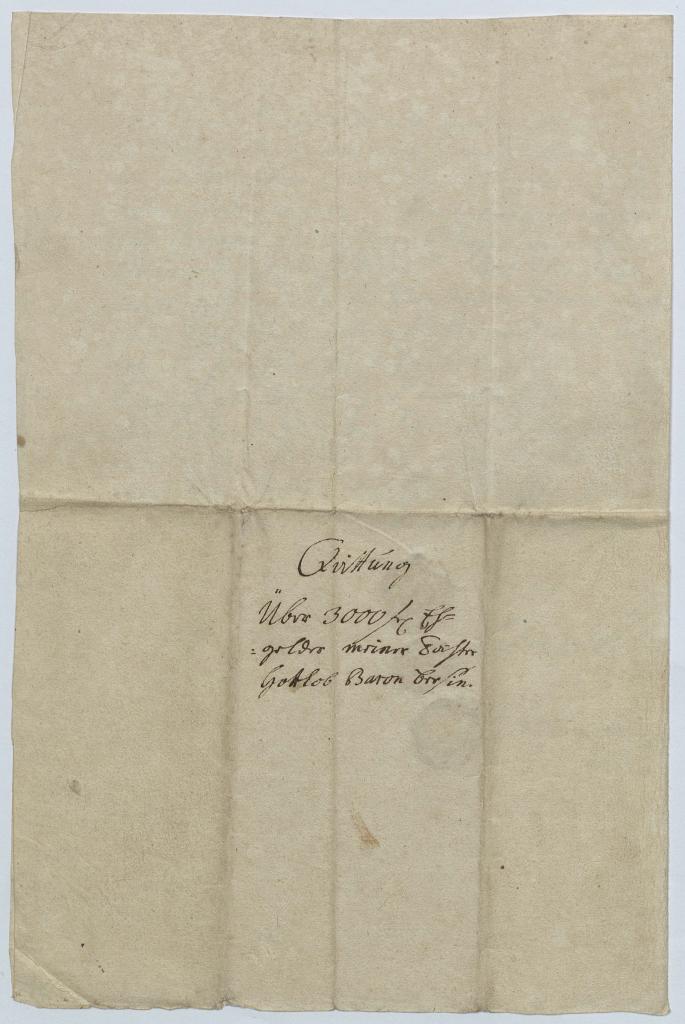 Quittung
Über 3000
=gelder meiner Tochter
Gottlob Baron